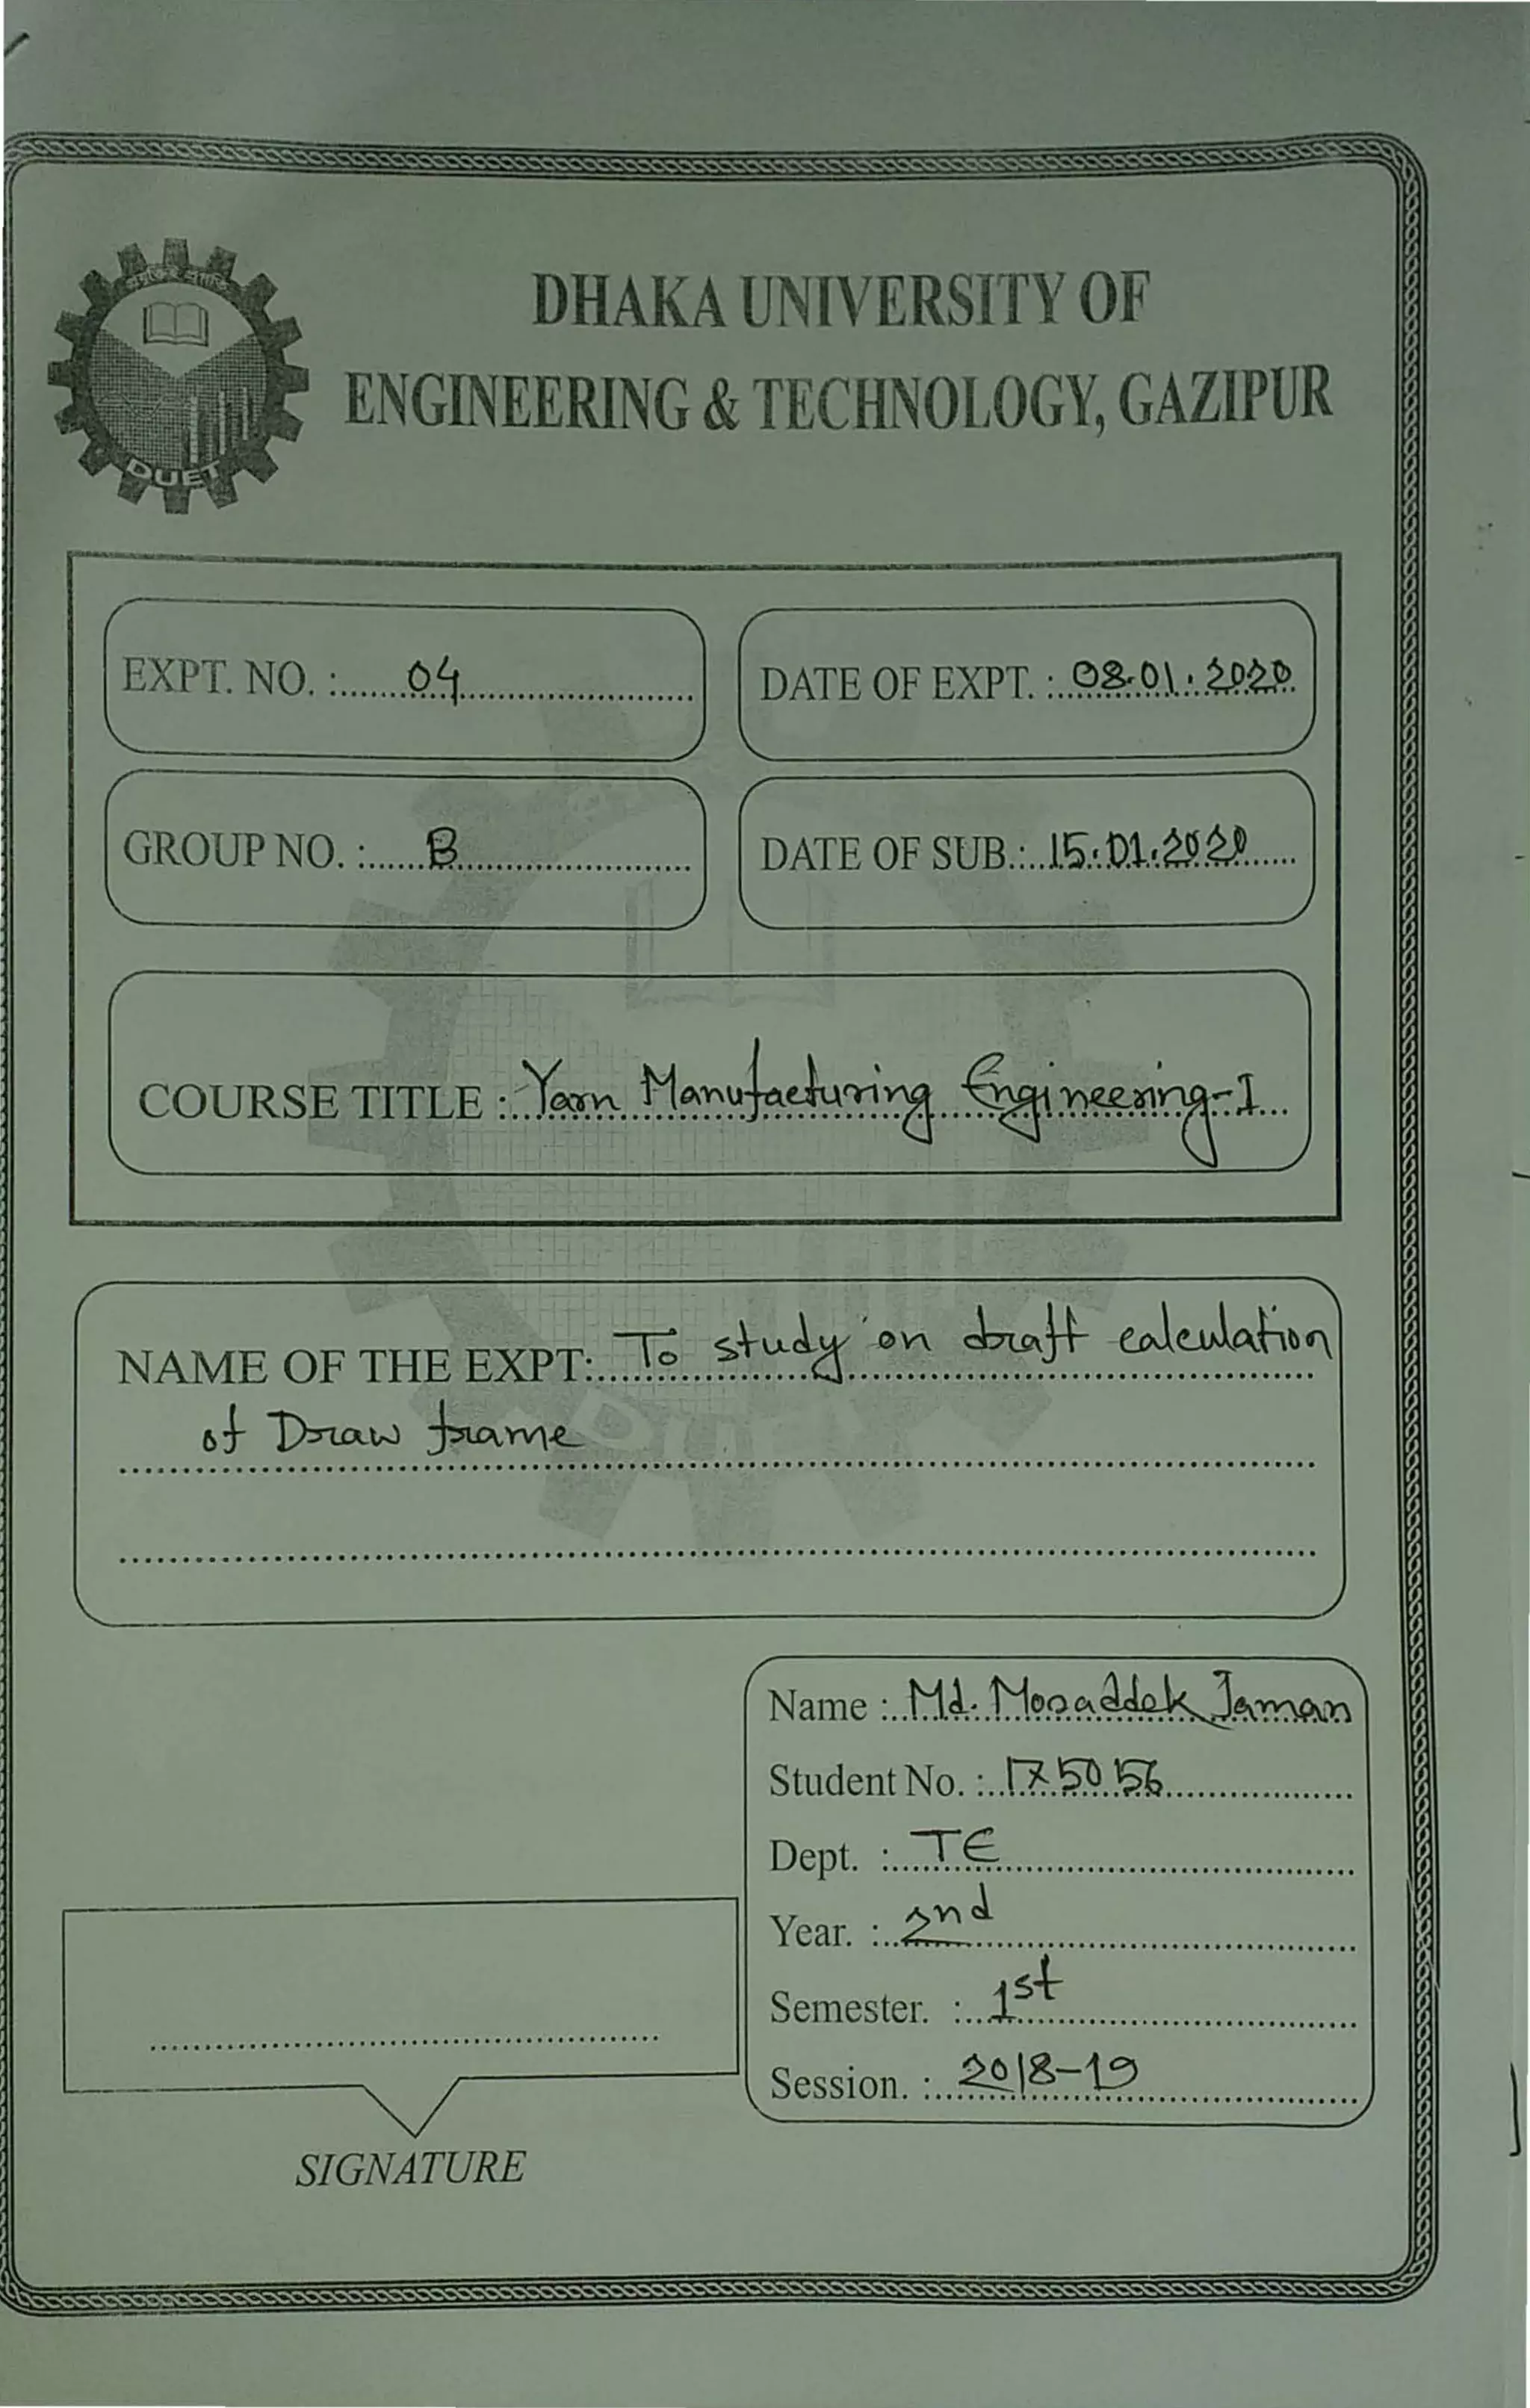 DHAKA UNIVERSITY OF
ENGINEERING & TECHNOLOGY, GAZIPUR
DUET
EXPT. NO. : 04
DATE OF EXPT. : 08.01.2020
GROUP NO. : B
DATE OF SUB.: 15.01.2020
COURSE TITLE : Yarn Manufacturing Engineering-I
NAME OF THE EXPT: To study on draft calculation
of Draw frame
Name : Md. Mosaddek Jaman
Student No. : 175056
Dept. : TE
Year. : 2nd
Semester. : 1st
Session. : 2018-19
SIGNATURE